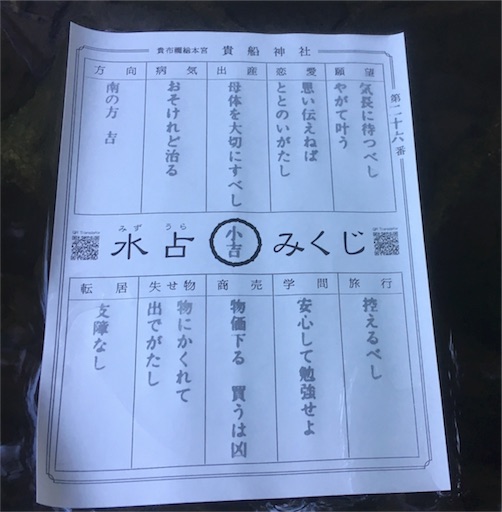 貴布禰総本宮 貴船神社
第二十六番
願望
気長に待つべし
やがて叶う
恋愛
思い伝えねば
ととのいがたし
出産
母体を大切にすべし
病気
おそけれど治る
方向
南の方 吉
みずうら
水占みくじ
小吉
旅行
控えるべし
学問
安心して勉強せよ
商売
物価下る 買うは凶
失せ物
物にかくれて
出でがたし
転居
支障なし